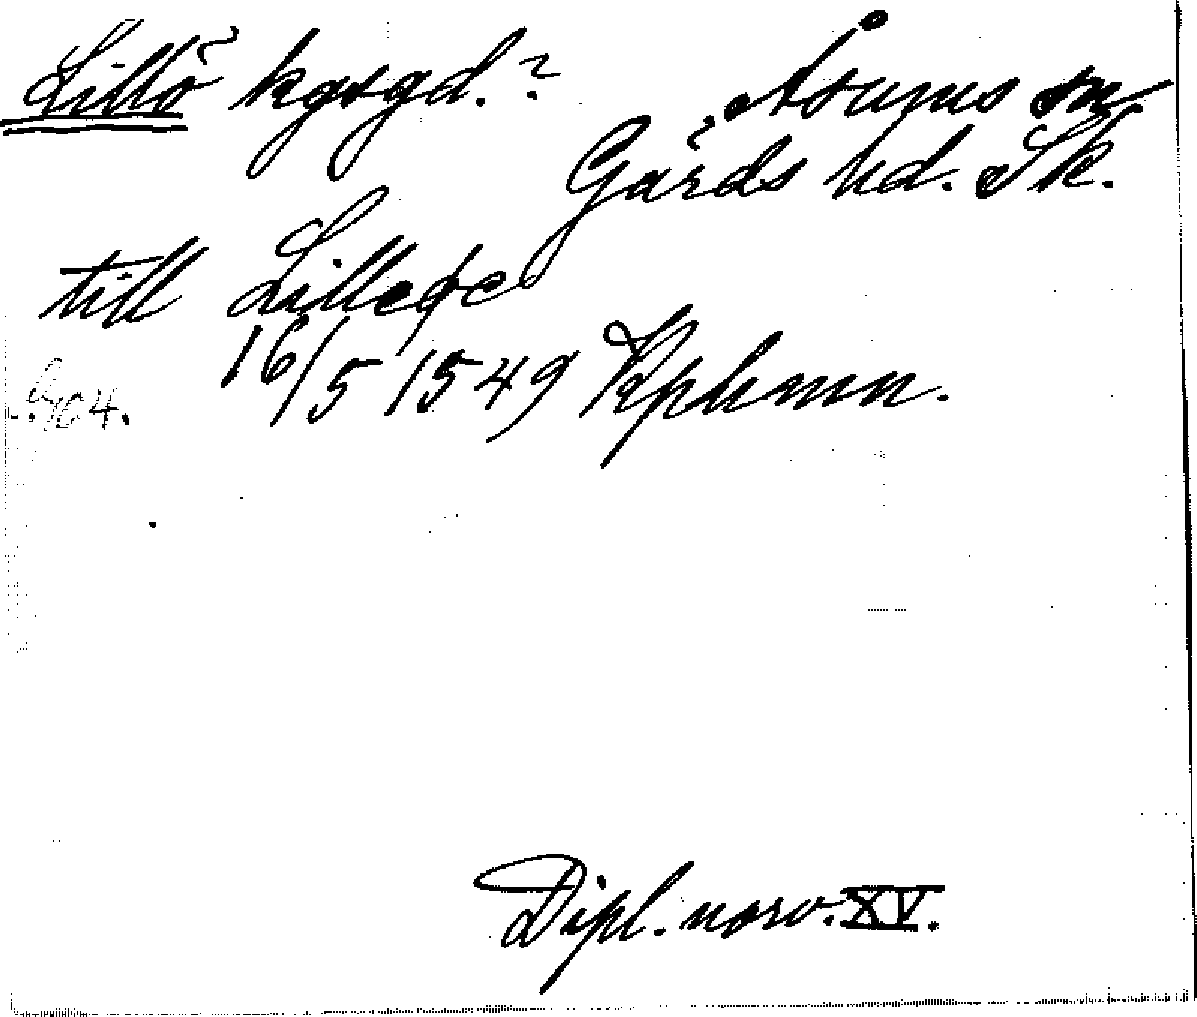 Lillö kgsgd.? Åsums sn
Gärds hd. Sk.
till Lilleøe
16/5 1549 Kphmn.
Dipl. norv. XV.